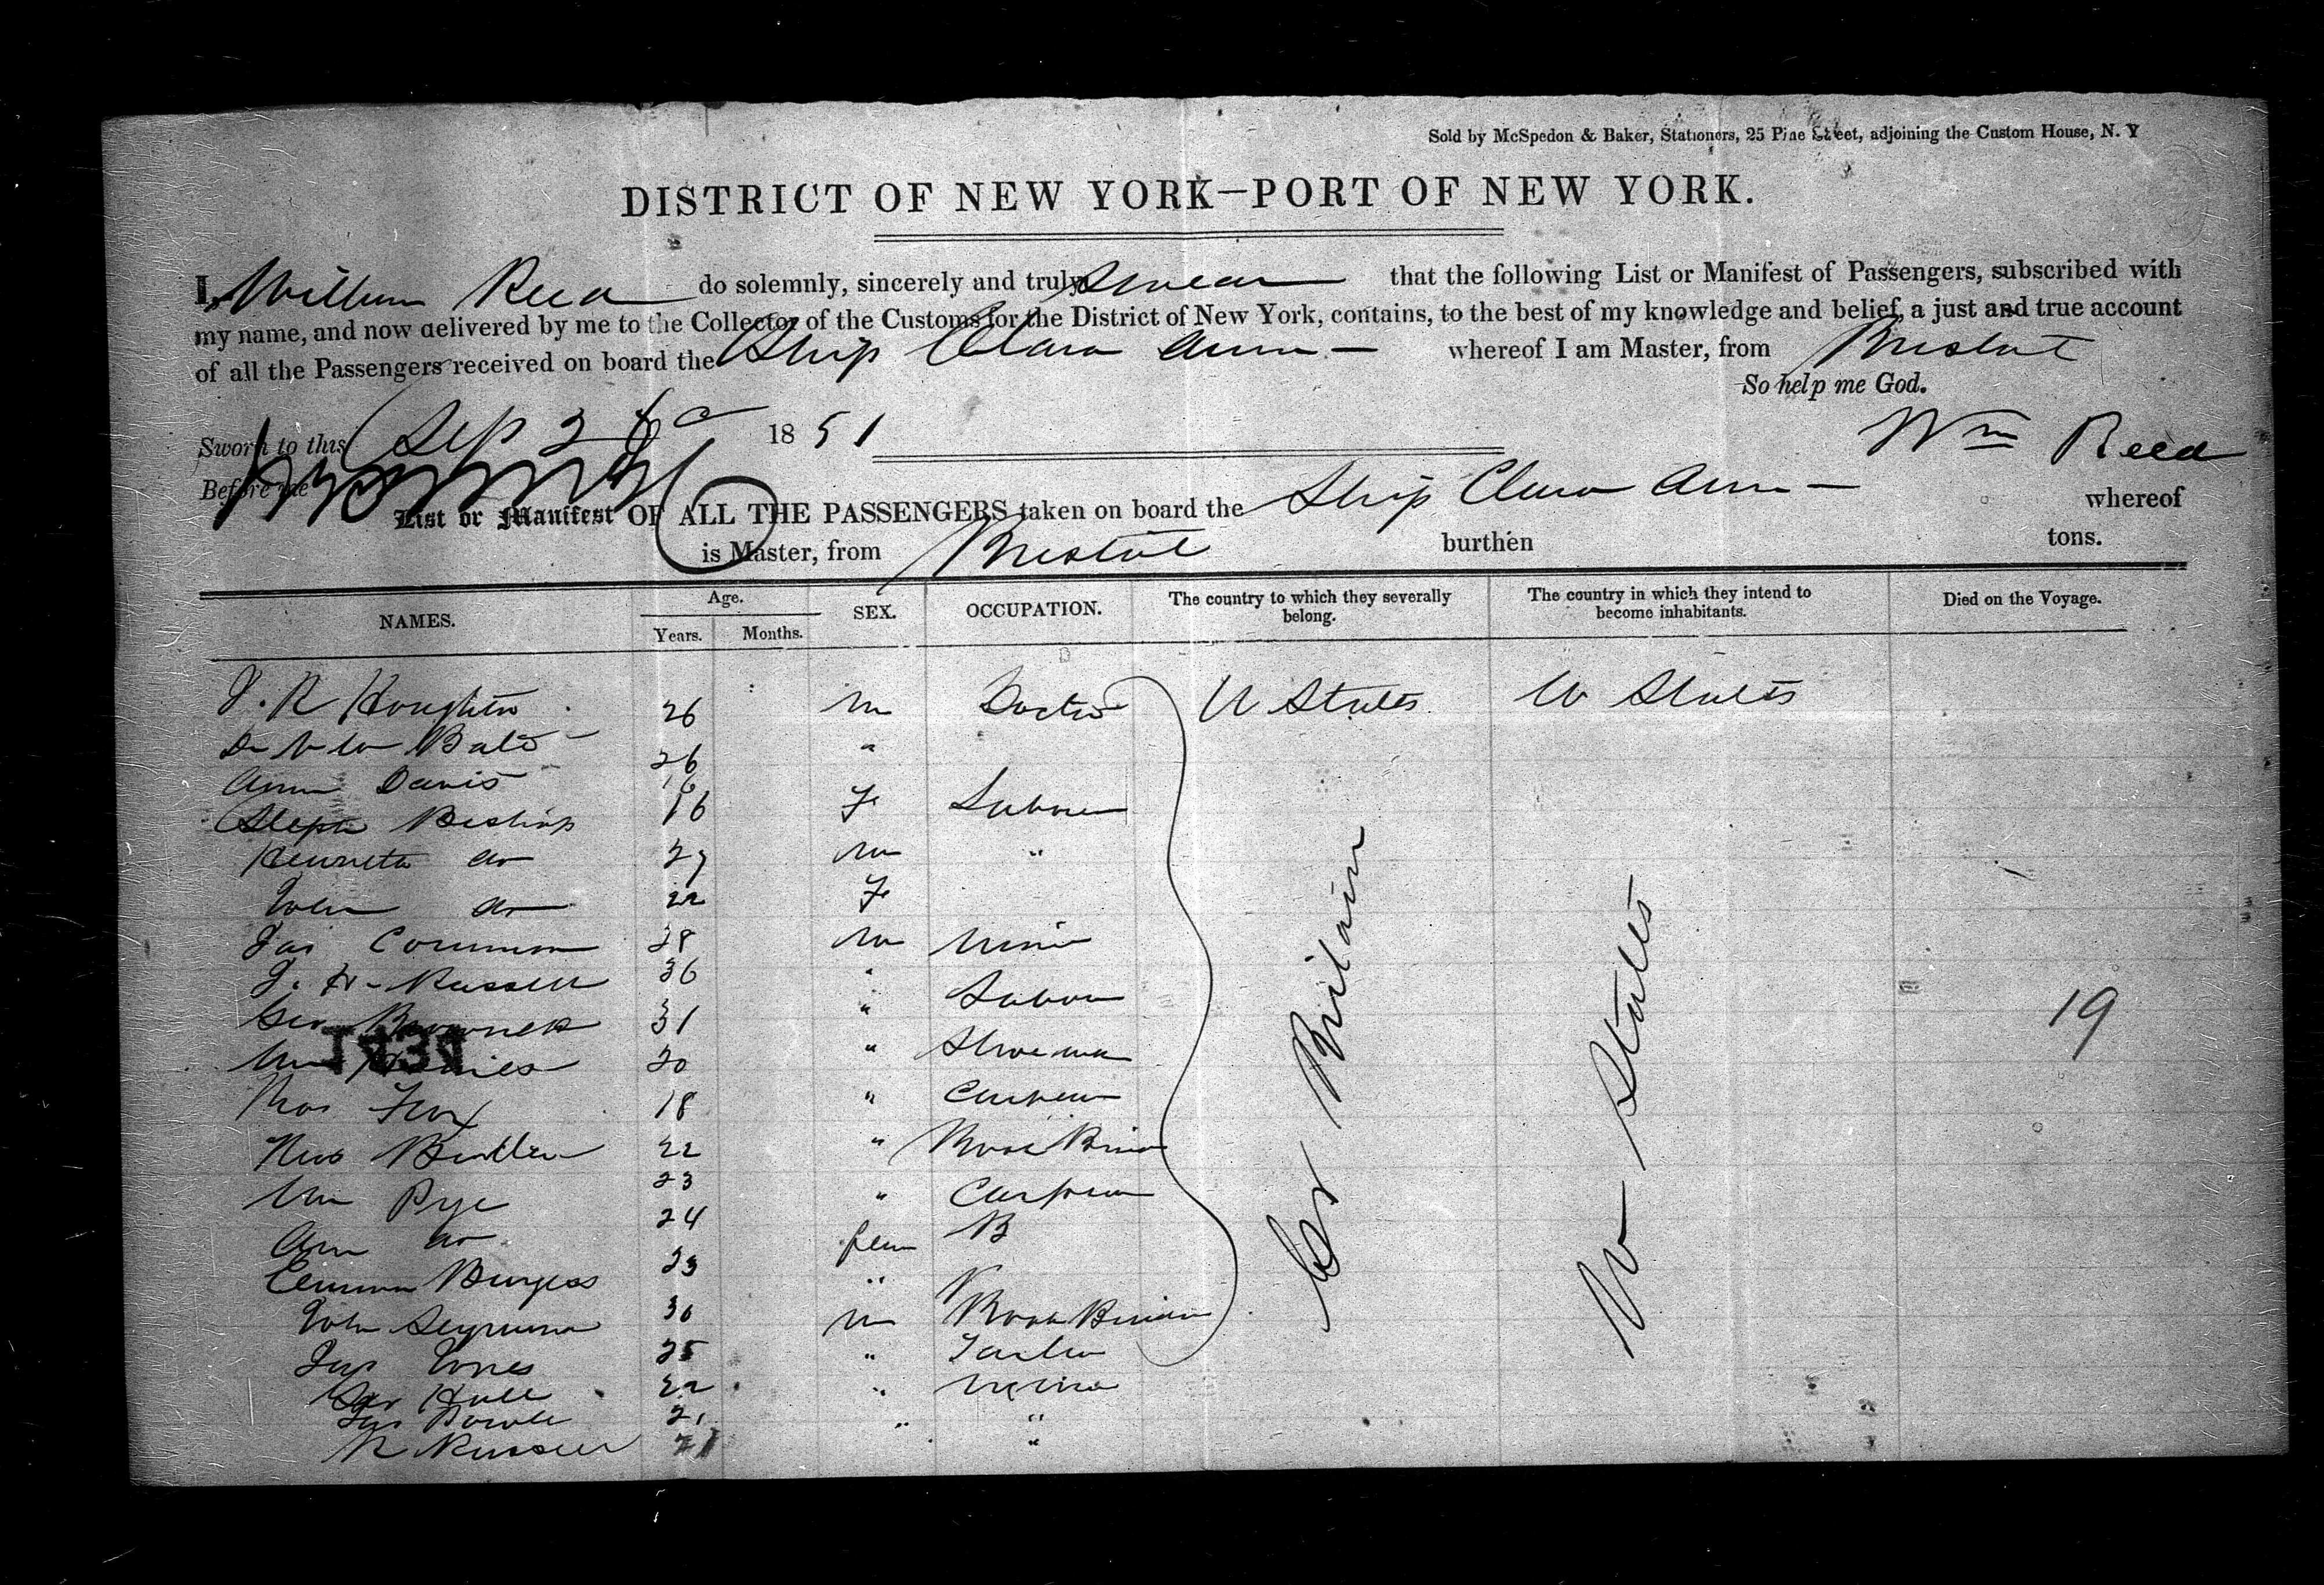 Sold by McSpedon & Baker, Stationers, 25 Pine Street, adjoining the Custom House, N. Y
DISTRICT OF NEW YORK—PORT OF NEW YORK.
I, William Reed do solemnly, sincerely and truly swear that the following List or Manifest of Passengers, subscribed with
my name, and now delivered by me to the Collector of the Customs for the District of New York, contains, to the best of my knowledge and belief, a just and true account
of all the Passengers received on board the Ship Clara Ann — whereof I am Master, from Bristol
So help me God.
Sworn to this Sep 1851
Wm Reed
Before me
List or Manifest OF ALL THE PASSENGERS taken on board the Ship Clara Ann — whereof
is Master, from Bristol burthen tons.
NAMES. Age. SEX. OCCUPATION. The country to which they severally belong. The country in which they intend to become inhabitants. Died on the Voyage.
Years. Months.
J. R Houghton 26 m Doctor U States U States
Bats 26 "
Ann Davis 16
Steph Bishop 16 F Labourer
Henrietta do 27 m "
John do 22 F
Jas 28 m Miner
J. H. Russell 36 "
Geo 31 " Labour
Wm 20 " Shoema
Thos Fox 18 " Carpen
22 " Book Bind
Wm Pye 23 " Carpen
Ann do 24 fem B
Emma Burgess 23 "
John 30 m Book Binder
Jas Jones 25 " Tailor
Geo Hull 22 " Miner
Jas 21 " "
R Russell 21 "
Gr Britain
U States
19